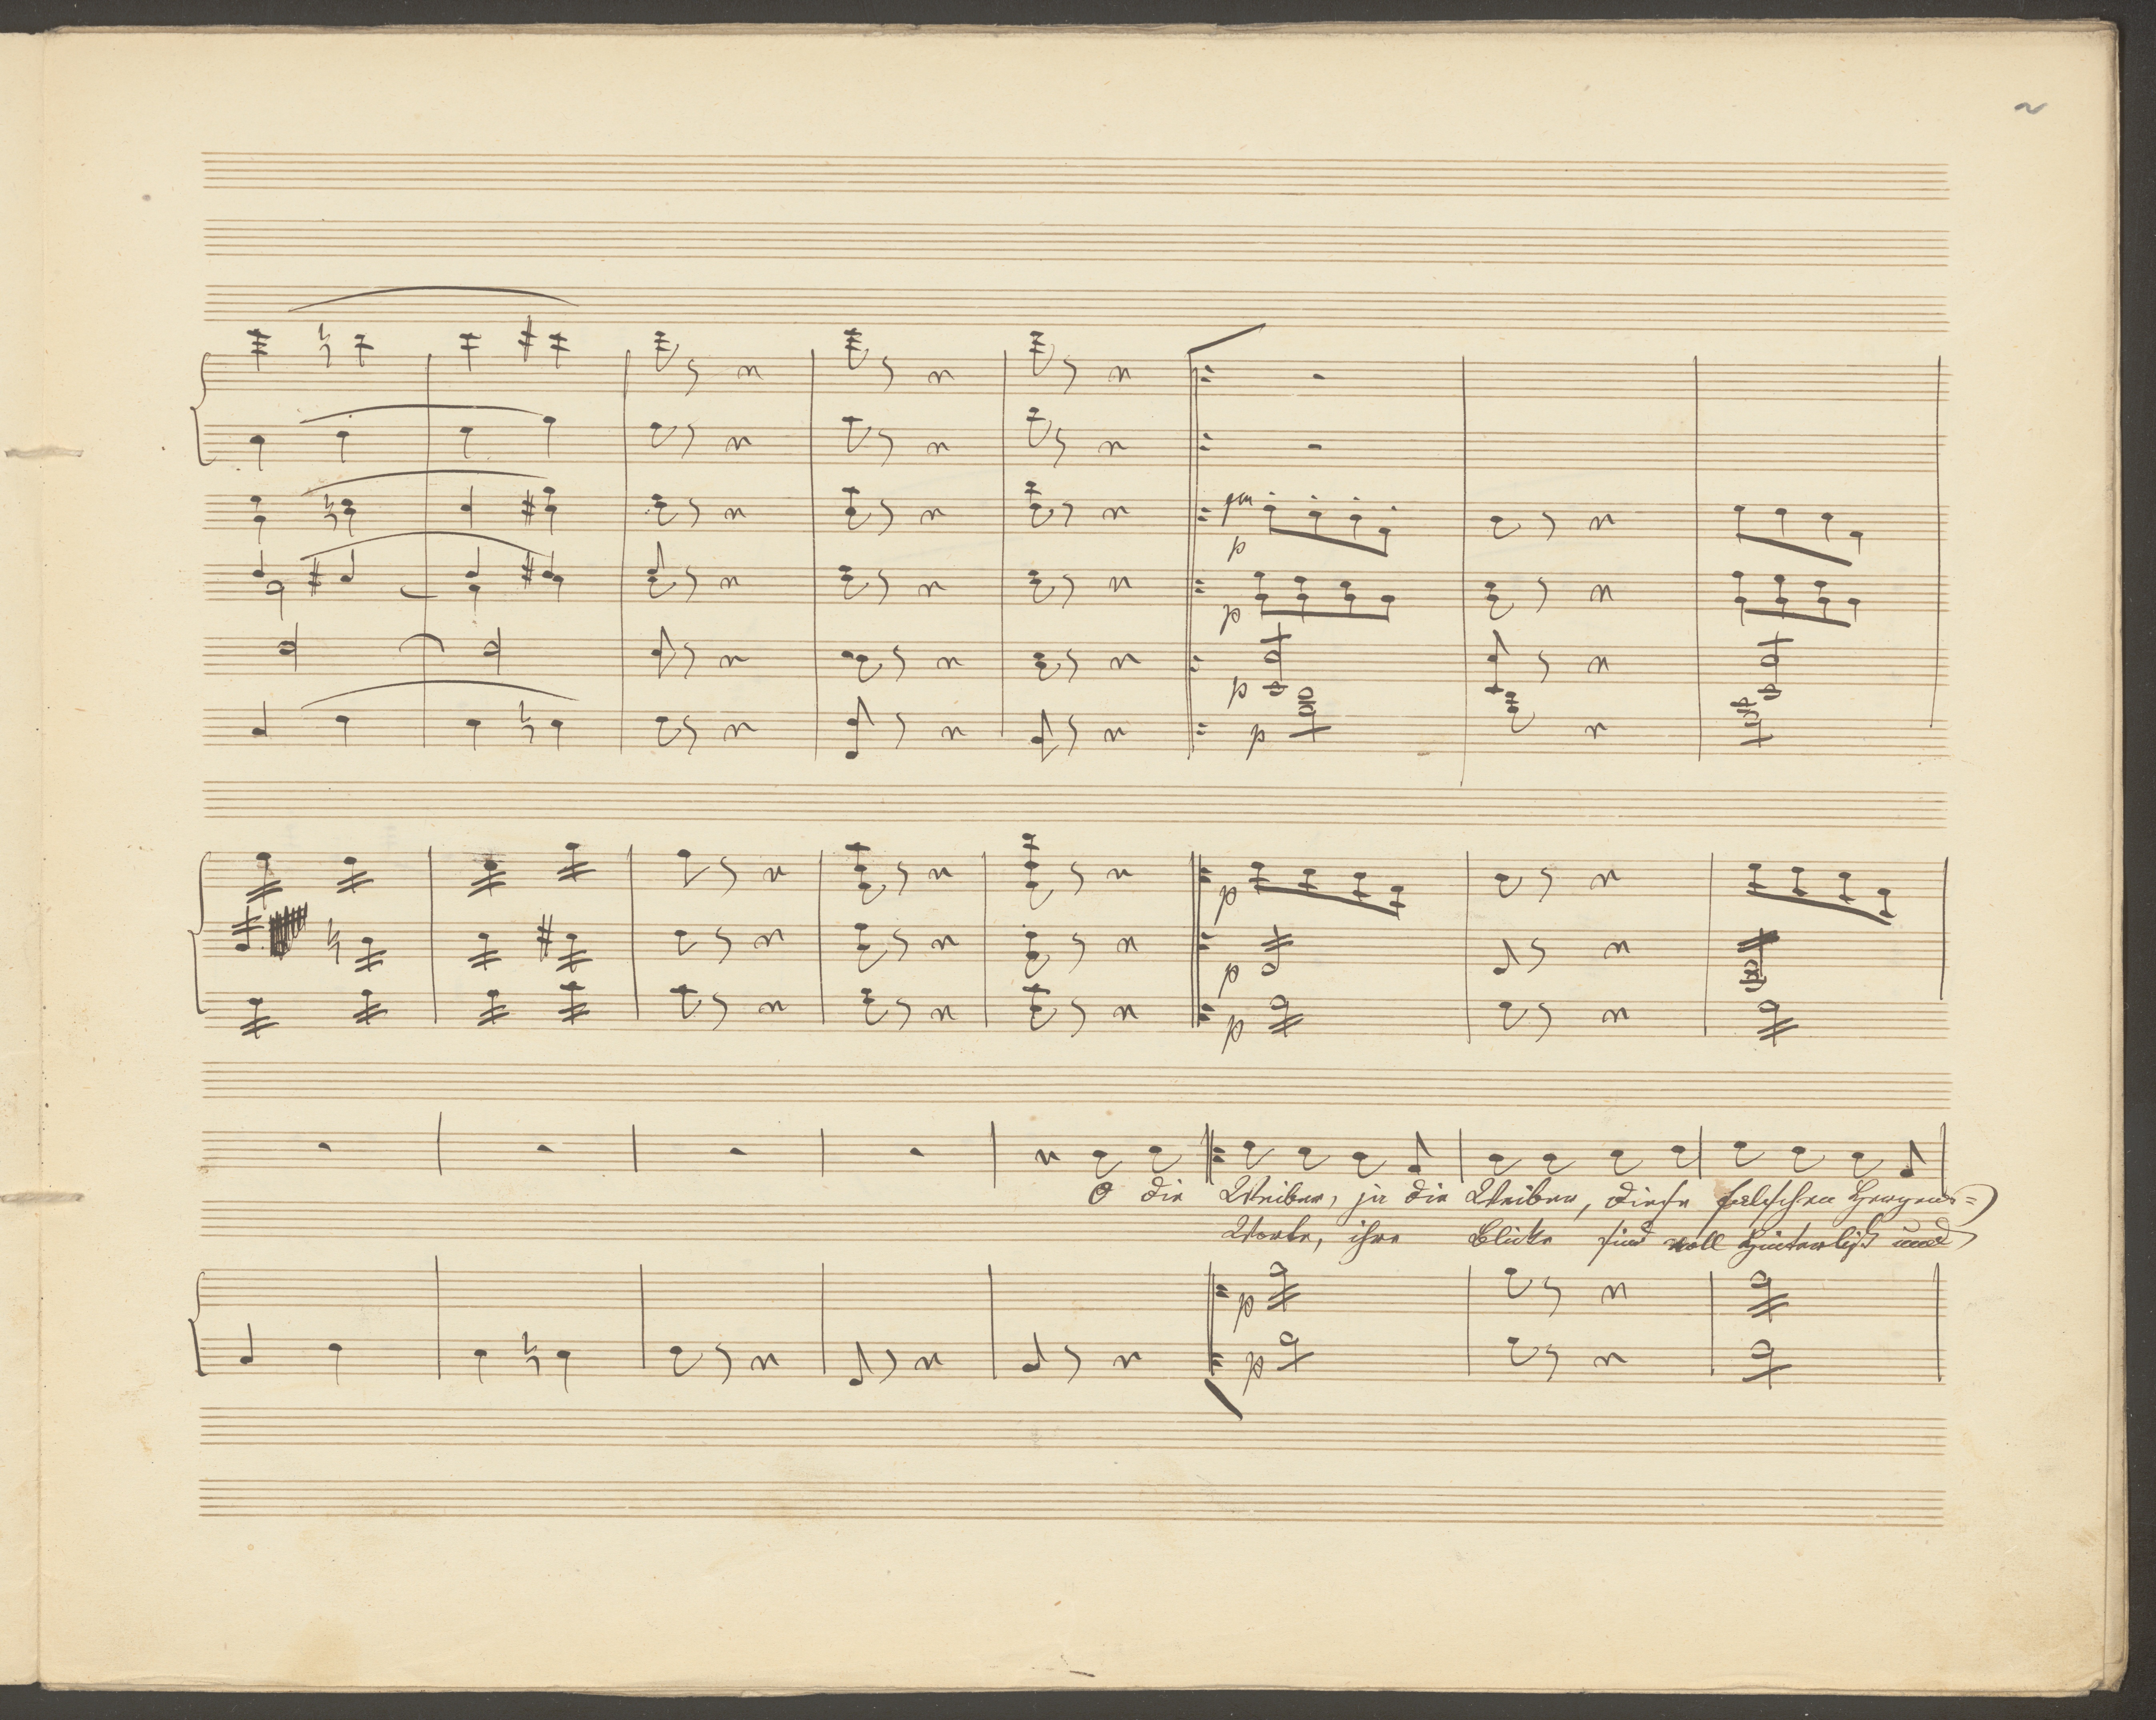 2
p
p
p
p
p
p
p
O die Weiber, ja die Weiber, diese falschen Herzens=
Worte, ihre Blicke sind voll Hinterlist und
p
p